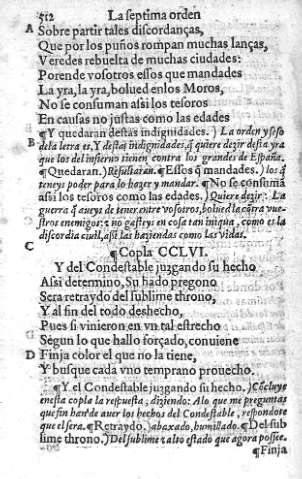 512 La septima orden
A Sobre partir tales discordanças,
Que por los puños rompan muchas lanças,
Veredes rebuelta de muchas ciudades:
Porende vosotros essos que mandades
La yra, la yra, bolued enlos Moros,
No se consuman assi los tesoros
En causas no justas como las edades
¶Y quedaran destas indignidades.) La orden y seso
B dela letra es, Y destas indignidades, q̃ quiere dezir desta yra
que los del infierno tienen contra los grandes de España.
¶Quedaran.) Resultaran. ¶Essos q̃ mandades.) los q̃
teneys poder para lo hazer y mandar. ¶No se consumã
assi los tesoros como las edades.) Quiere dezir: La
guerra q̃ aueys de tener entre vosotros, bolued la cõtra vue-
stros enemigos: z no gasteys en cosa tan iniqua, como es la
discordia ciuil, assi las haziendas como las vidas.
C
¶Copla CCLVI.
Y del Condestable juzgando su hecho
Assi determino, Su hado pregono
Sera retraydo del sublime throno,
Y al fin del todo deshecho,
Pues si vinieron en vn tal estrecho
Segun lo que hallo forçado, conuiene
D Finja color el que no la tiene,
Y busque cada vno temprano prouecho.
¶Y el Condestable juzgando su hecho.) Cõcluye
enesta copla la respuesta, diziendo: Alo que me preguntas
que fin han de auer los hechos del Condestable, respondote
que el sera. ¶Retraydo.) abaxado, humillado. ¶Del sub
lime throno.) Del sublime z alto estado que agora possee.
¶Finja